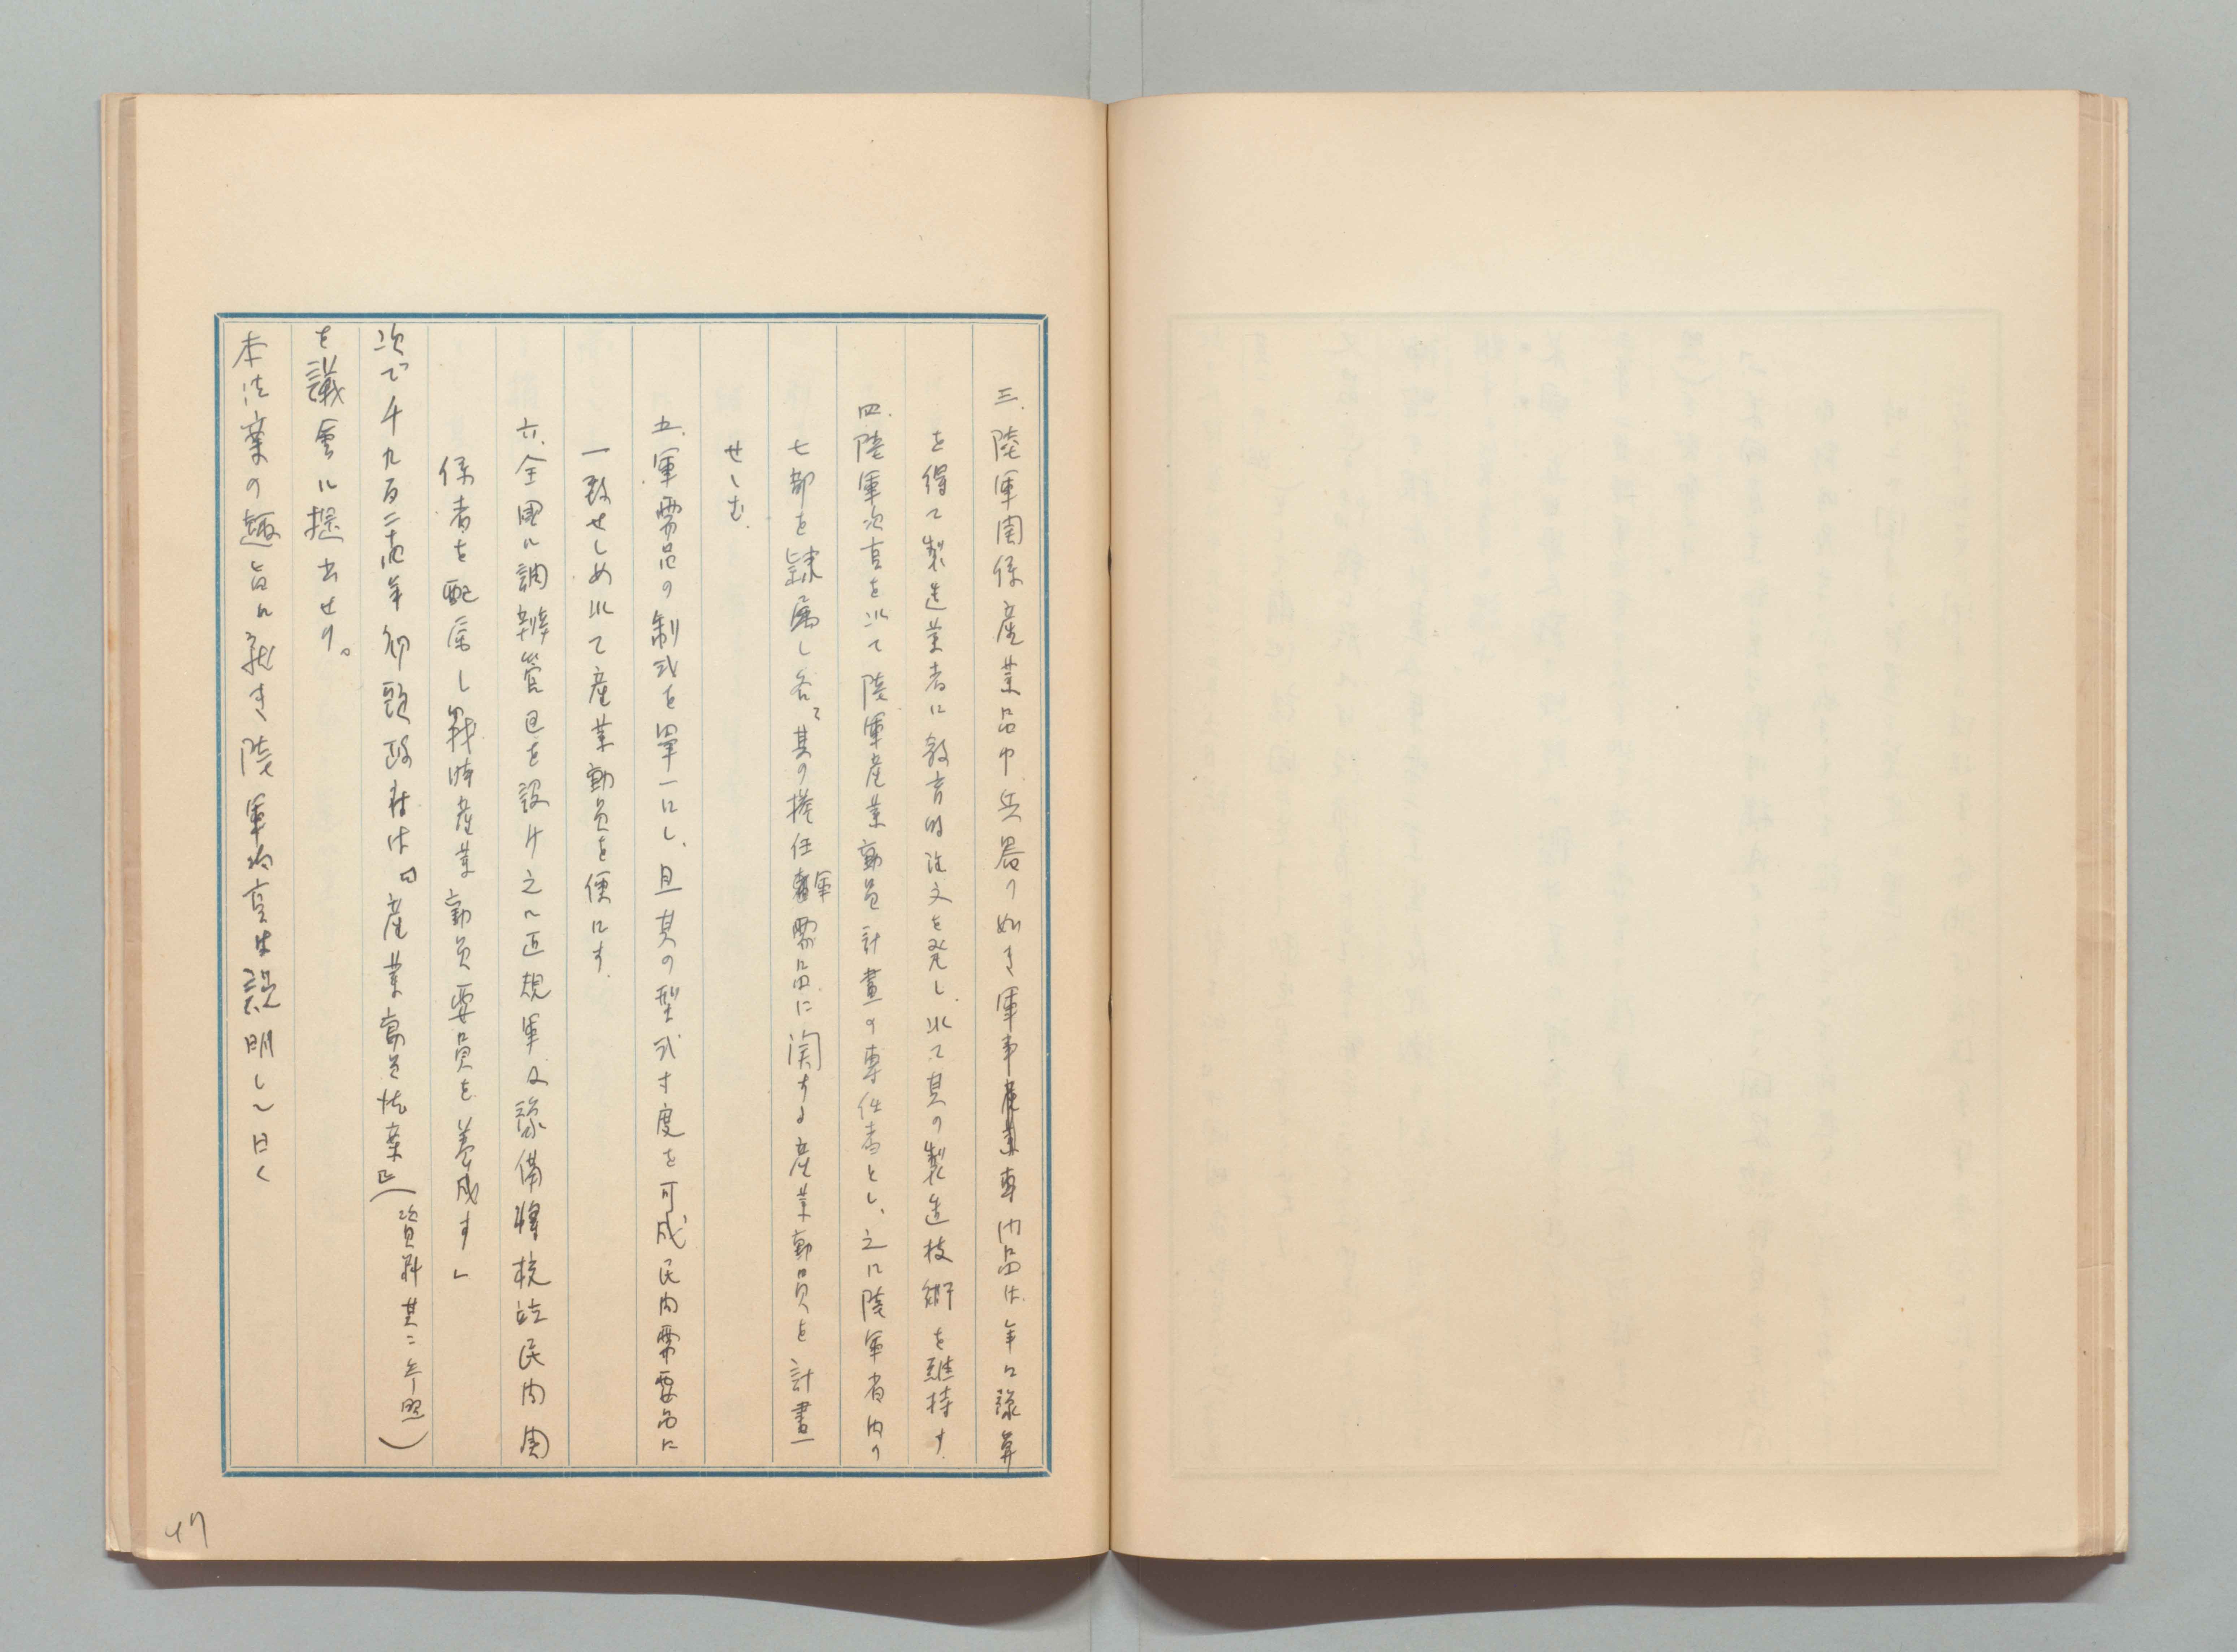 三.陸軍関係産業品中兵器の如き軍事専門品は.年に豫算
を得て製造業者に教育的注文を発し.以て其の製造技術を維持す.
四.陸軍次官を以て陸軍産業動員計畫の専任者とし、之に陸軍省内の
七部を隷属し各〻其の擔任軍需品に関する産業動員を計畫
せしむ.
五.軍需品の制式を単一にし、且其の型式寸度を可成民間需要品に
一致せしめ以て産業動員を便にす.
六.全國に調辨管区を設け之に正規軍及豫備將校竝民間関
係者を配属し戦時産業動員要員を養成す」
次で千九百二十四年初頭政府は『産業動員法案』(資料其二参照)
を議会に提出せり。
本法案の趣旨に就き陸軍次官は説明して曰く
47